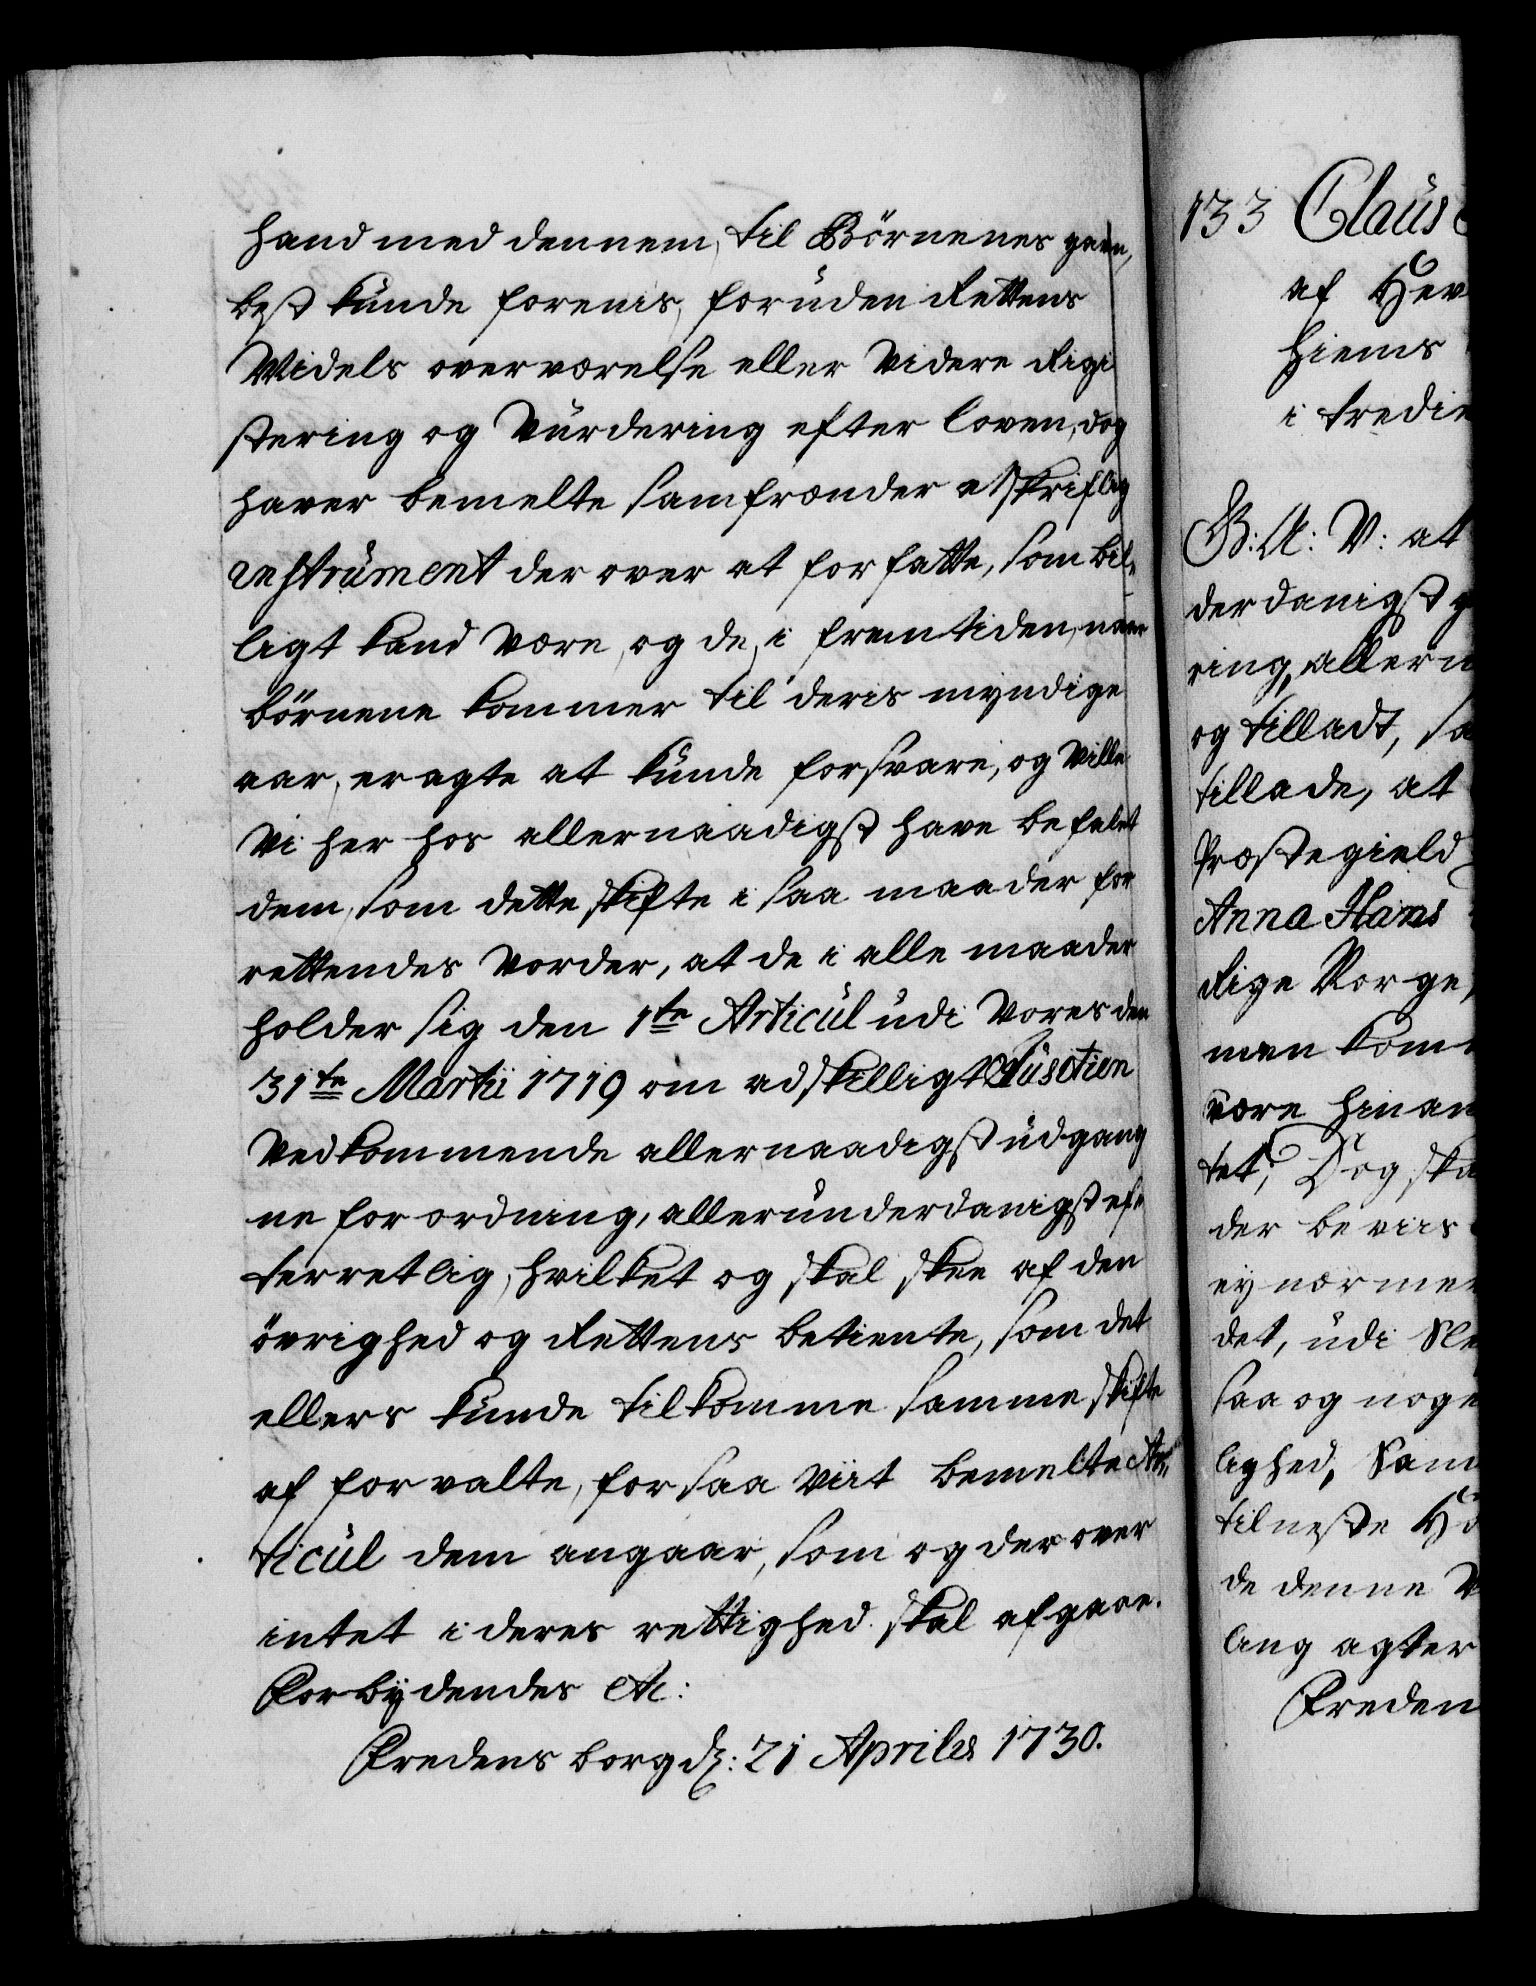 hand med dennem, til Börnenes gavn,
best kunde foreenis, foruden Rettens
Midels overværelse eller Videre Regi
stering og Vurdering efter loven, dog
haver bemelte samfrænder et skriftlig
instrument der over at forfatte, som bil-
ligt kand være, og de, i fremtiden, naar
börnene kommer til deris myndige
aar, eragte at kunde forsvare, og Ville
Vi her hos allernaadigst have befalet
dem, som dette skifte i saa maader for
rettendes Vorder, at de i alle maader
holder sig den 1te Articul udi Vores den
31te Martii 1719 om adskilligt Justitien
Vedkommende allernaadigst udgang
ne forordning, allerunderdanigst ef-
terretlig, hvilket og skal skee af den
övrighed og Rettens betiente, som det
ellers kunde tilkomme samme skifte
af forvalte, forsaa viit bemelte Ar-
ticul dem angaar, som og der over
intet i deres rettighed skal afgaae.
Forbydendes etc:
Fredensborg d: 21 Aprilis 1730.
133 Claus
af Her
hiems
i tredie
G: A: V: at
derdanigst
ring, allern
og tilladt, sa
tillade, at
Præstegield
Anna Hans
Rige Norge,
men kom
være hinan
tet; Dog ska
der beviis
ey nærme
det, udi
saa og noge
lighed, Sam
tilneste
de denne
lang agter
Freden